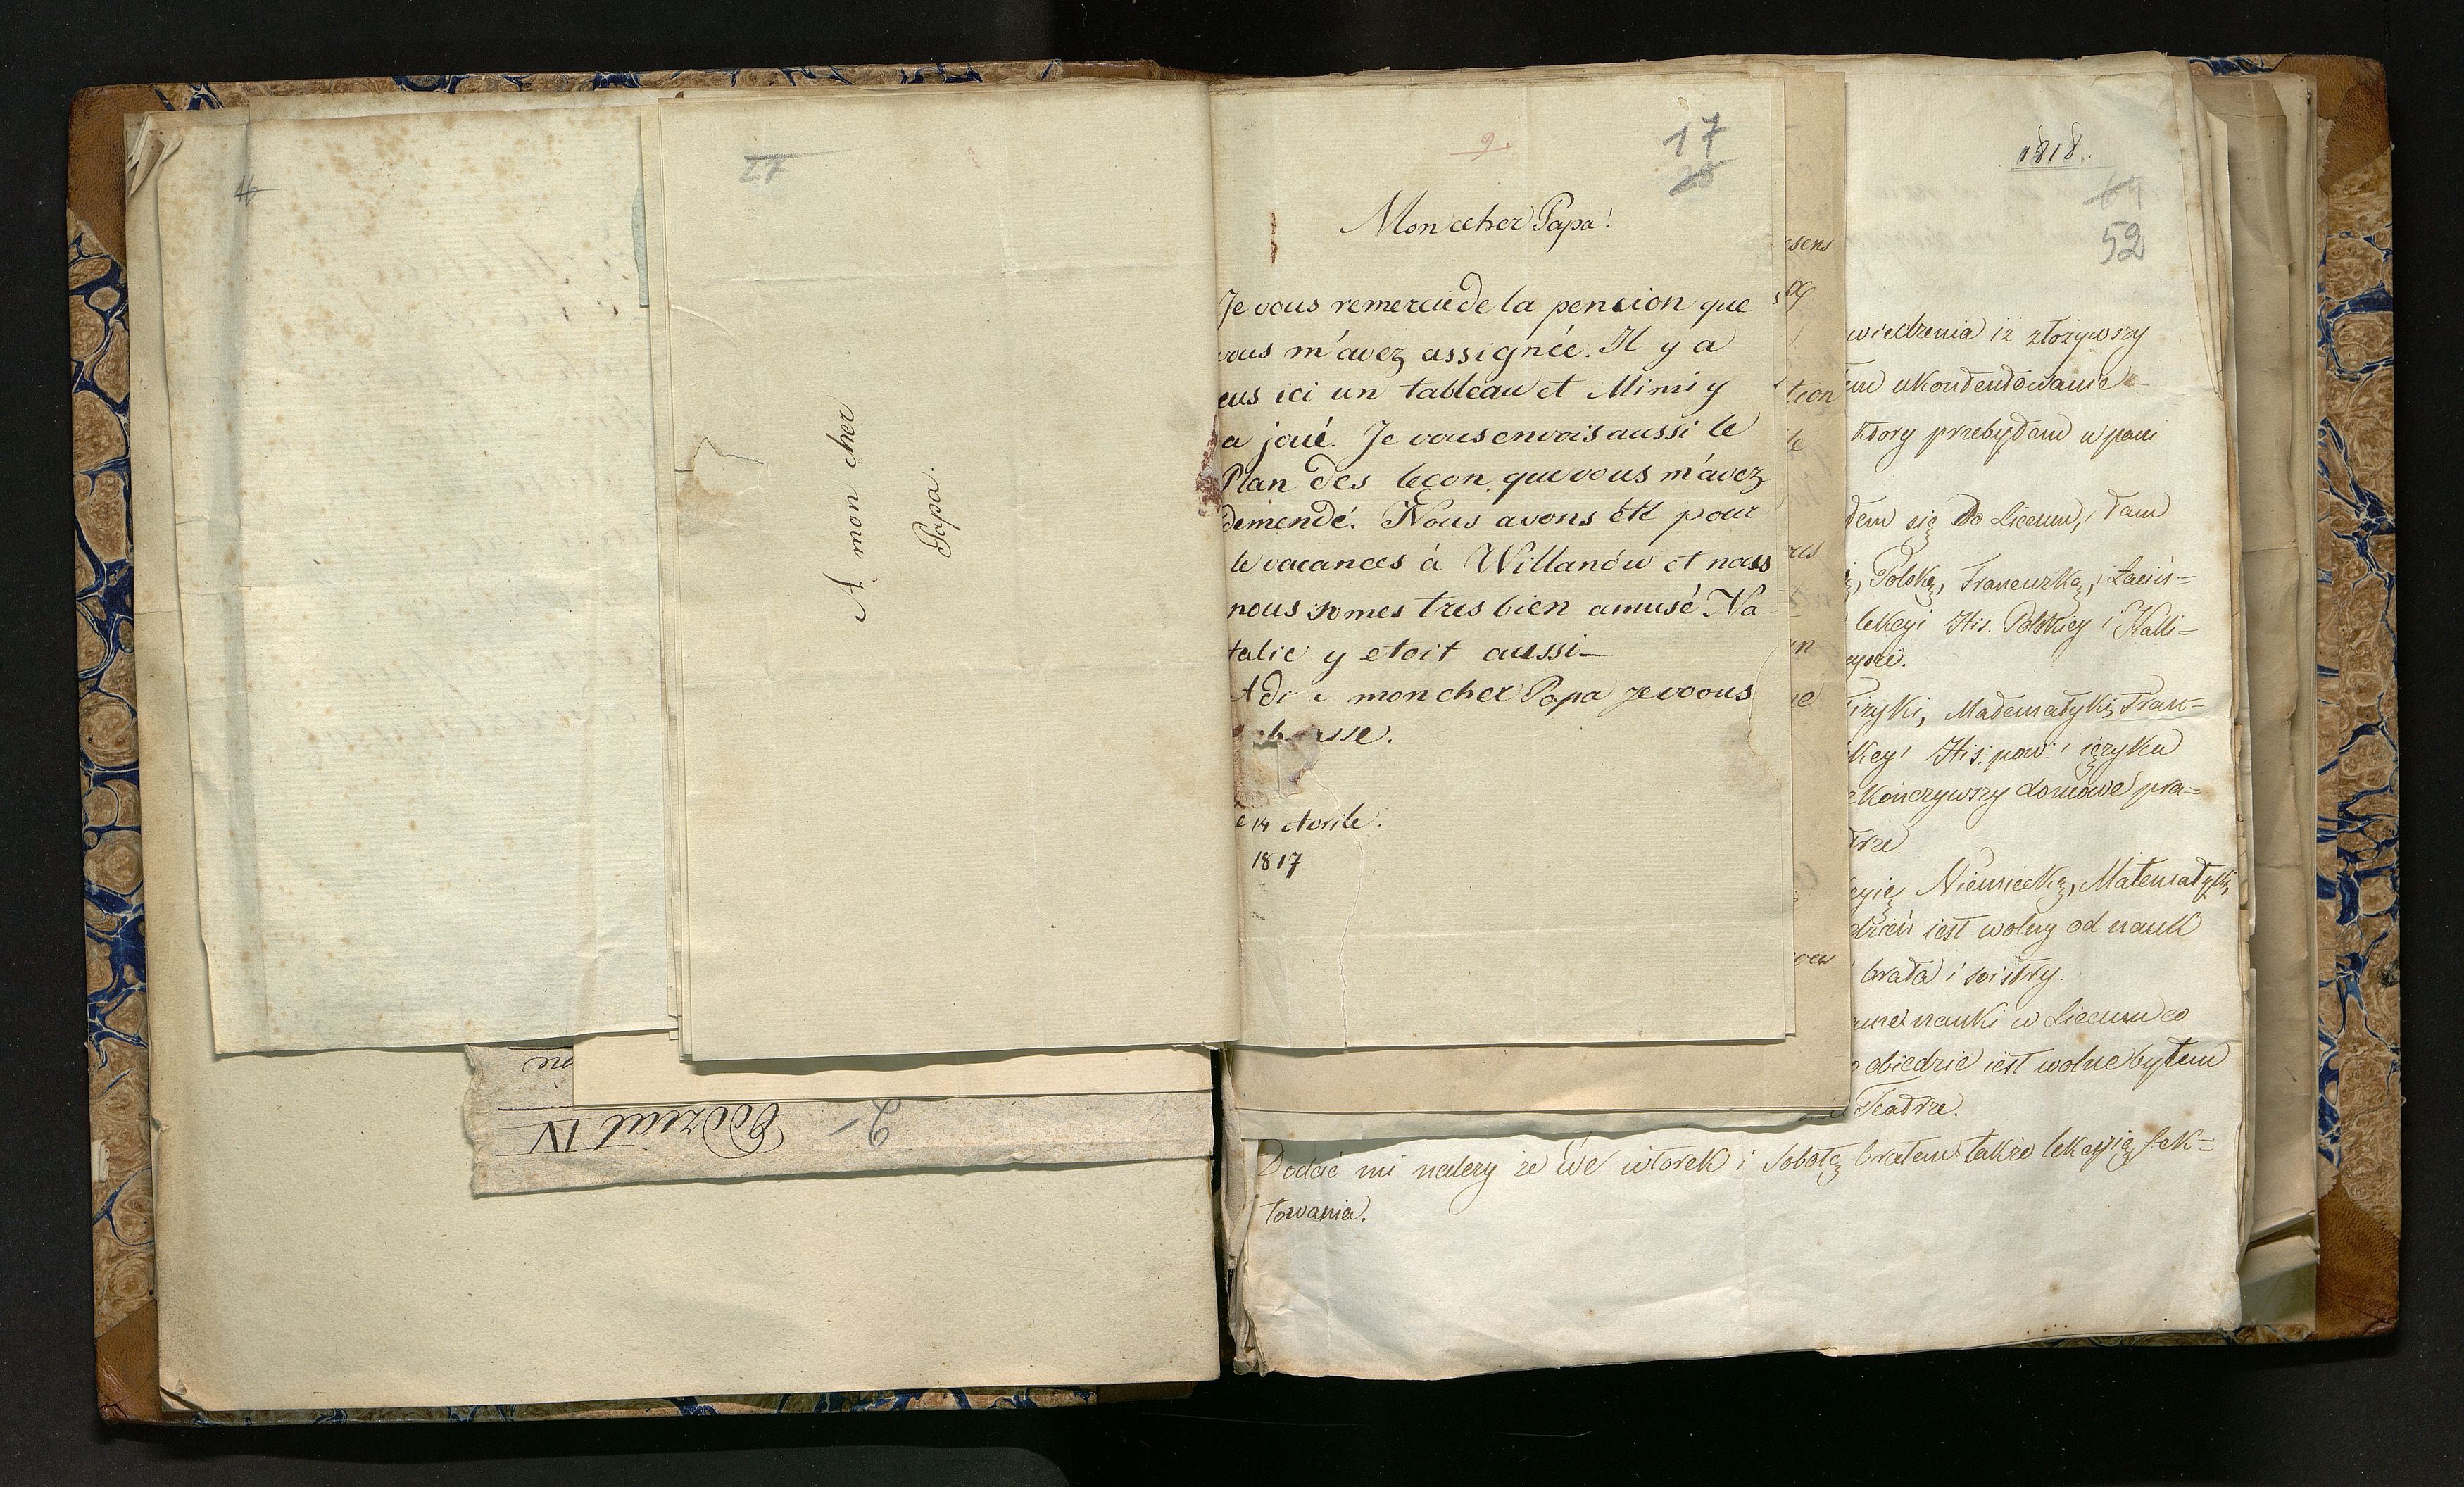 16
27
A mon cher
Papa.
2
Podział IV
9.
17
28
Mon cher Papa!
Je vous remercie de la pencion que
vous m'avez assignée. Il y a
eus ici un tableau et Mimi y
a joué. Je vous envois aussi le
Plan des leçon, que vous m'avez
demendé. Nous avons été pour
le vacances à Willanów et nous
nous somes tres bien amusé Na-
talie y etoit aussi—
Adi mon cher Papa je vous
asse.
14 Avrile.
1817
sens
tion
le
1818.
64
52
wiedzenia iż złożywszy
ukontentowanie
który przebyłem w pań
łem się do Liceum, tam
Polską, Francuzką, i Łaciń=
lekcyi His. Polskiey i Kalli=
Fizyki, Matematyki, Fran=
lekcyi His. pow: i ięzyka
zkończywszy domowe pra=
trze.
Niemiecką, Matematyki,
dzień iest wolny od nauk
brata i siostry.
nauki w Liceum co
obiedzie iest wolne byłem
Teatrze.
Dodać mi należy że we wtorek i sobotę brałem także lekcyią fek=
towania.